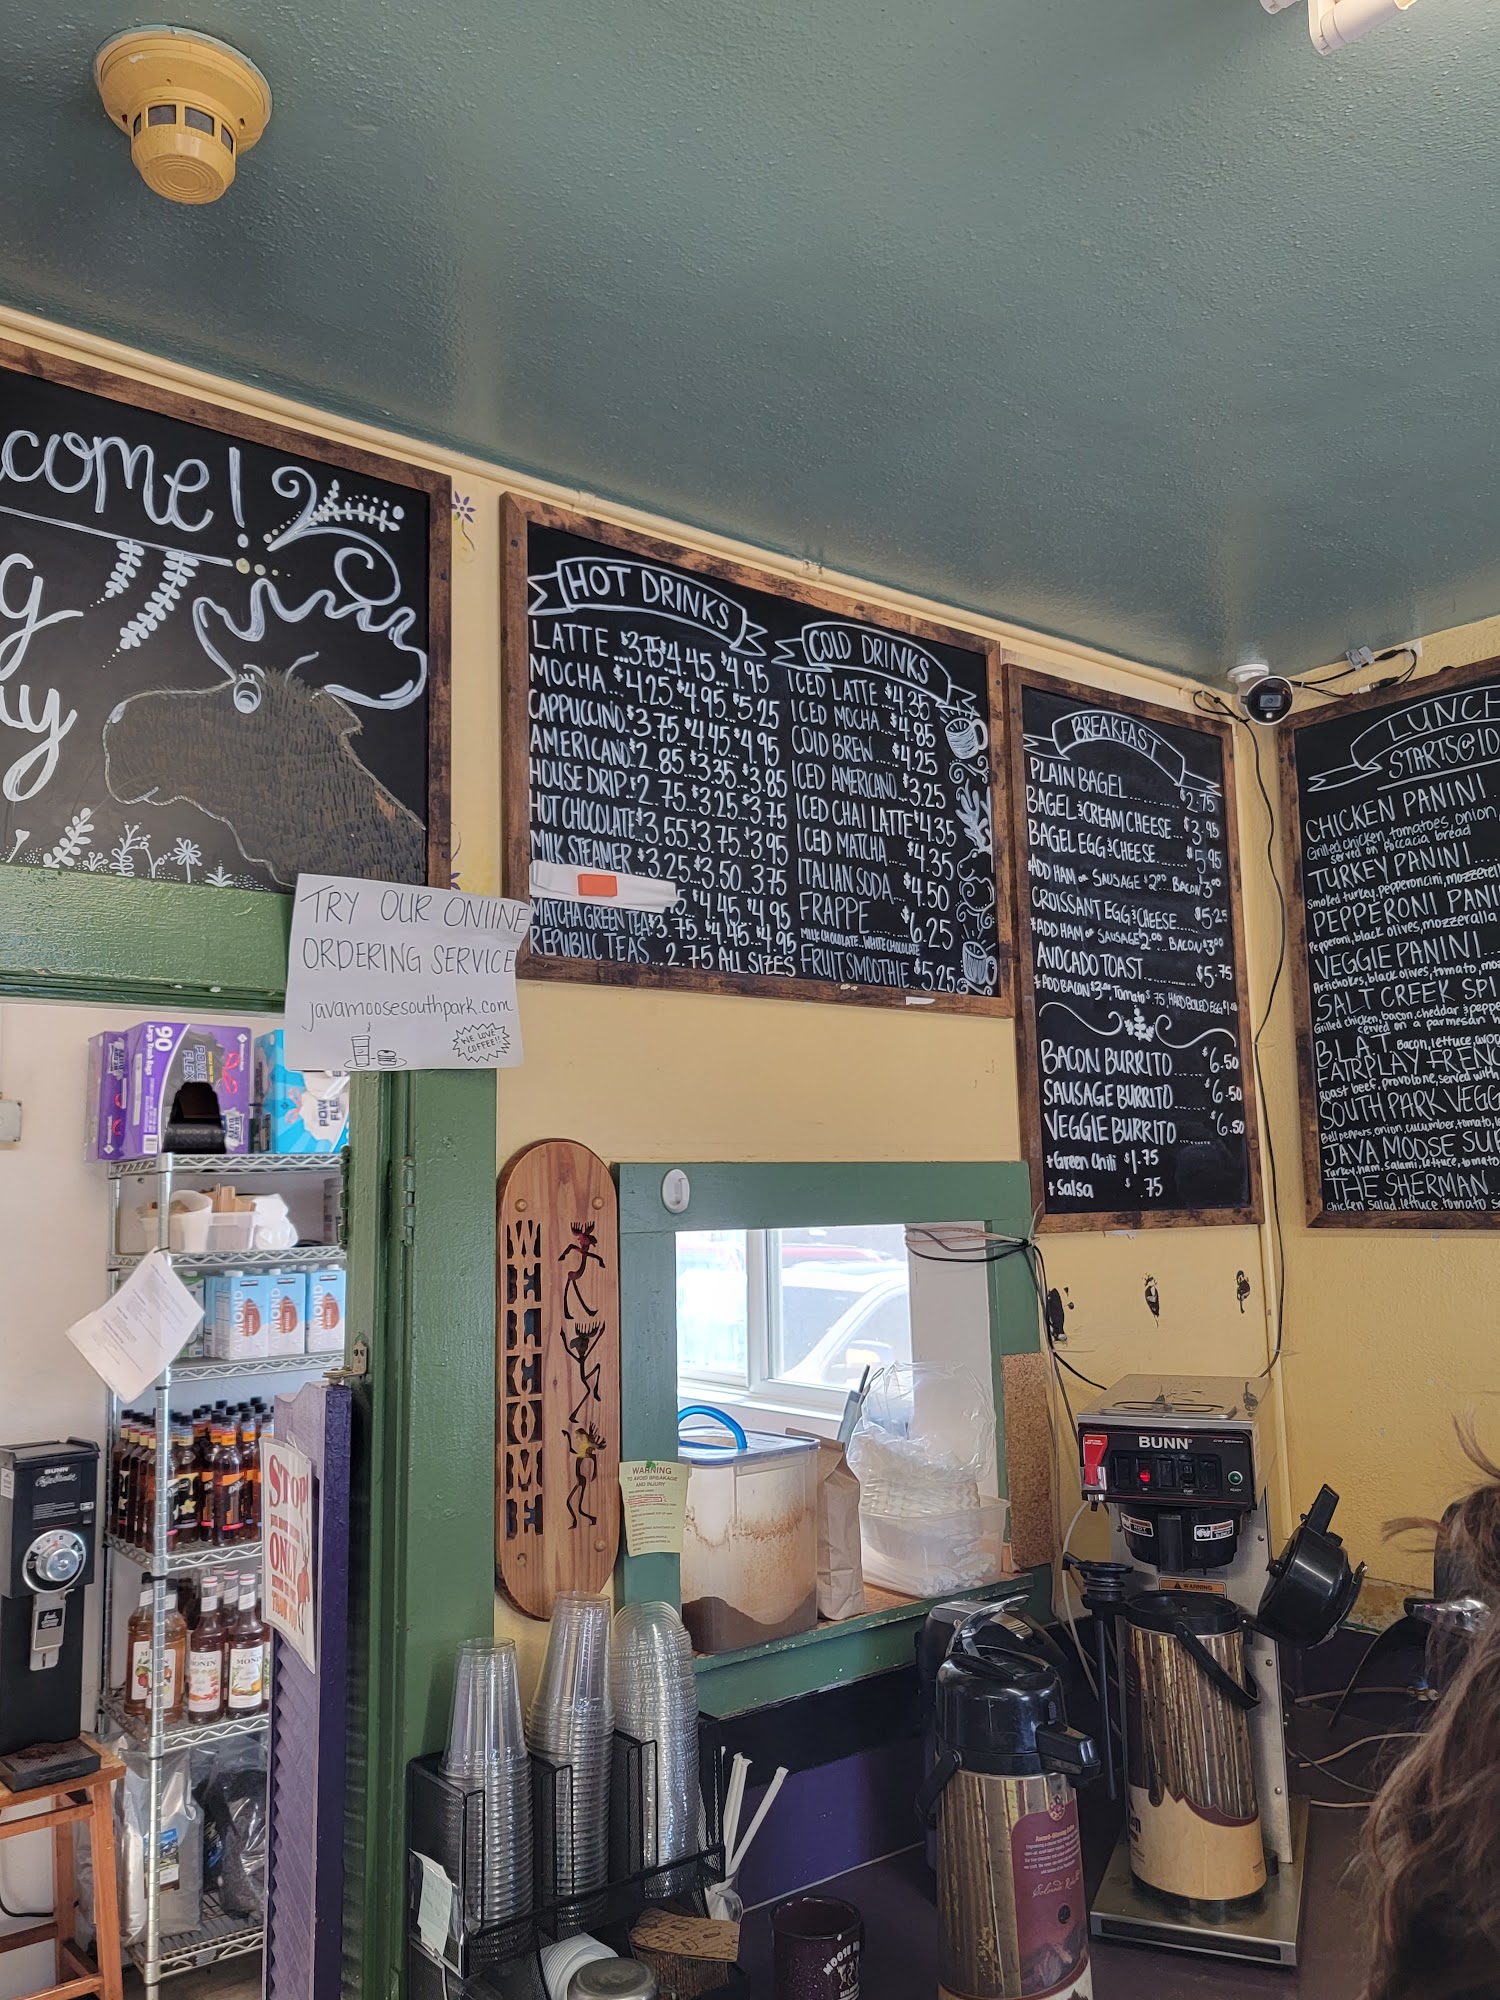 come!
g
ay
TRY OUR ONLINE
ORDERING SERVICE
javamoosesouthpark.com
WE LOVE
COFFEE!!
HOT DRINKS
LATTE ...$3.75 $4.45 $4.95
MOCHA ...$4.25 $4.95 $5.25
CAPPUCCINO.$3.75...$4.45.$4.95
AMERICANO.$2.85...$3.35...$3.85
HOUSE DRIP.$2.75...$3.25...$3.75
HOT CHOCOLATE.$3.55...$3.75...$3.95
MILK STEAMER..$3.25..$3.50..$3.75
$4.45...$4.95
MATCHA GREEN TEA $3.75...$4.45...$4.95
REPUBLIC TEAS...2.75 ALL SIZES
COLD DRINKS
ICED LATTE $4.35
ICED MOCHA ..$4.85
COLD BREW ...$4.25
ICED AMERICANO...$3.25
ICED CHAI LATTE $4.35
ICED MATCHA ..$4.35
ITALIAN SODA...$4.50
FRAPPE .....$6.25
MILK CHOCOLATE...WHITE CHOCOLATE
FRUIT SMOOTHIE $5.25
BREAKFAST
PLAIN BAGEL............$2.75
BAGEL & CREAM CHEESE...$3.95
BAGEL EGG & CHEESE......$5.95
+ADD HAM or SAUSAGE $2.00 BACON $3.00
CROISSANT EGG & CHEESE....$5.25
+ADD HAM or SAUSAGE $2.00 BACON $3.00
AVOCADO TOAST..........$5.75
+ADD BACON $3.00 Tomato $.75, HARD BOILED EGG $1.00
BACON BURRITO.......$6.50
SAUSAGE BURRITO......$6.50
VEGGIE BURRITO......$6.50
+Green Chili $1.75
+Salsa $.75
LUNCH
STARTS@10
CHICKEN PANINI
Grilled chicken, tomatoes, onion,
served on focaccia bread
TURKEY PANINI....
Smoked turkey, pepperoncini, mozzerell
PEPPERONI PANI
Pepperoni, black olives, mozzeralla
VEGGIE PANINI....
Artichokes, black olives, tomato, moz
SALT CREEK SPI
Grilled chicken, bacon, cheddar & peppe
served on a parmesan h
B.L.A.T. Bacon, lettuce, avoc
FAIRPLAY FRENC
Roast beef, provolone, served with
SOUTH PARK VEGG
Bell peppers, onion, cucumber, tomato, l
JAVA MOOSE SU
Turkey, ham, salami, lettuce, tomato
THE SHERMAN....
Chicken Salad, lettuce, tomato s
90
POWER
FLEX
WELCOME
WARNING
TO AVOID BREAKAGE
AND INJURY
STOP!
ONLY
BUNN
BUNN
WARNING
MONIN
MONIN
Award-Winning Coffee
MOOSE